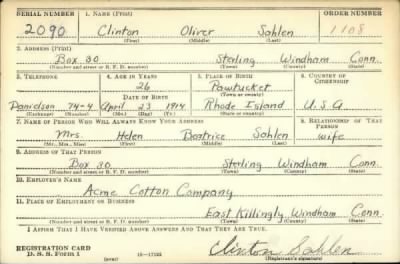 SERIAL NUMBER 1. NAME (Print) ORDER NUMBER
2090 Clinton Oliver Sahlen 1108
(First) (Middle) (Last)
2. ADDRESS (Print)
Box 30 Sterling Windham Conn.
(Number and street or R. F. D. number) (Town) (County) (State)
3. TELEPHONE 4. AGE IN YEARS 5. PLACE OF BIRTH 6. COUNTRY OF CITIZENSHIP
26 Pawtucket
DATE OF BIRTH (Town or county)
Danielson 74-4 April 23 1914 Rhode Island U.S.A
(Exchange) (Number) (Mo.) (Day) (Yr.) (State or country)
7. NAME OF PERSON WHO WILL ALWAYS KNOW YOUR ADDRESS 8. RELATIONSHIP OF THAT PERSON
Mrs. Helen Beatrice Sahlen wife
(Mr., Mrs., Miss) (First) (Middle) (Last)
9. ADDRESS OF THAT PERSON
Box 30 Sterling Windham Conn.
(Number and street or R. F. D. number) (Town) (County) (State)
10. EMPLOYER'S NAME
Acme Cotton Company
11. PLACE OF EMPLOYMENT OR BUSINESS
East Killingly Windham Conn.
(Number and street or R. F. D. number) (Town) (County) (State)
I AFFIRM THAT I HAVE VERIFIED ABOVE ANSWERS AND THAT THEY ARE TRUE.
REGISTRATION CARD
D. S. S. FORM 1 (over) 16—17105 Clinton Sahlen
(Registrant's signature)